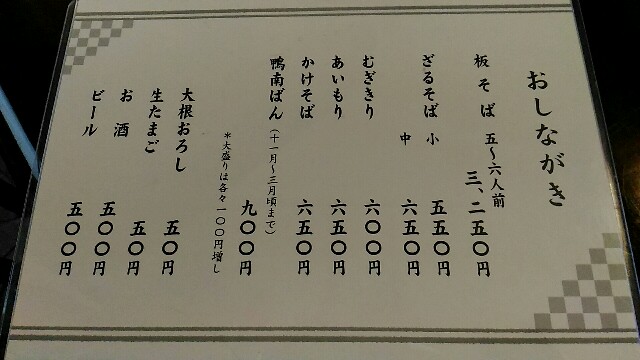 おしながき
板そば 五~六人前 三、二五〇円
ざるそば 小 五五〇円
中 六五〇円
むぎきり 六〇〇円
あいもり 六五〇円
かけそば 六五〇円
鴨南ばん(十一月~三月頃まで) 九〇〇円
*大盛りは各々一〇〇円増し
大根おろし 五〇円
生たまご 五〇円
お酒 五〇〇円
ビール 五〇〇円